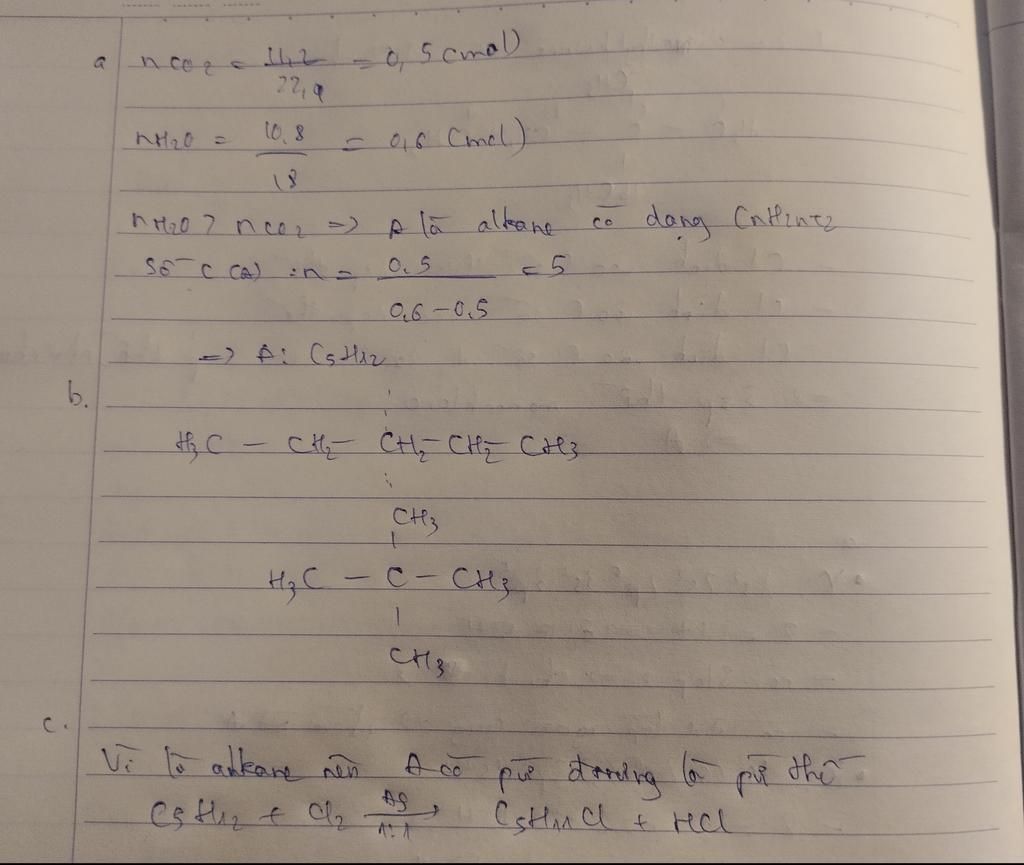 a nCO2 = 11,2 / 22,4 = 0,5 (mol)
nH2O = 10.8 / 18 = 0,6 (mol)
nH2O > nCO2 => A là alkane có dạng CnH2n+2
Số C (A) : n = 0.5 / 0,6 - 0,5 = 5
=> A: C5H12
b.
H3C - CH2 - CH2 - CH2 - CH3
CH3
H3C - C - CH3
CH3
c.
Vì là alkane nên A có pứ đặc trưng là pứ thế
C5H12 + Cl2 AS 1:1 → C5H11Cl + HCl